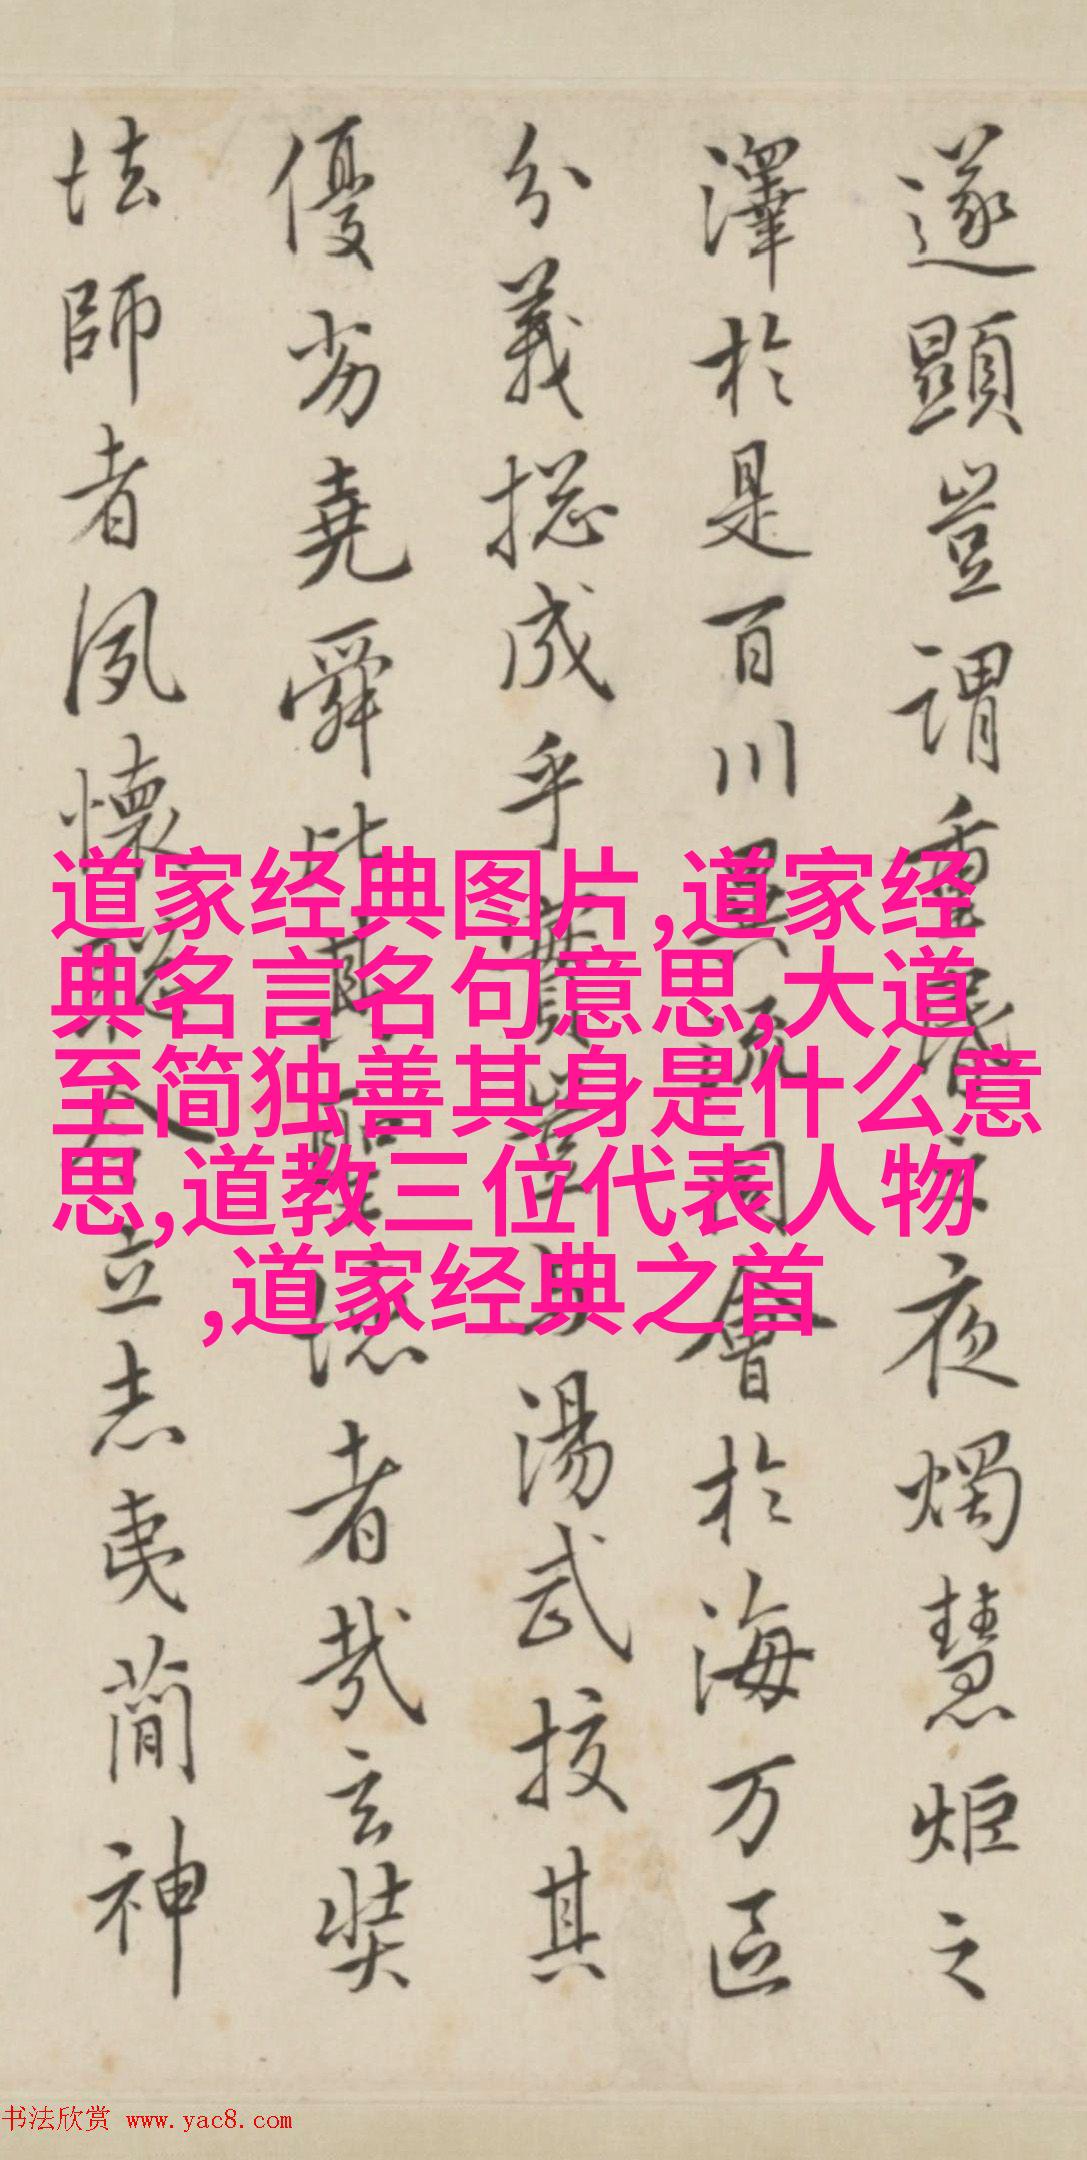 遂顯豈謂重昏之夜燭慧炬之
澤於是百川異流同會於海万區
分義捴成乎實豈與湯武挍其
優劣堯舜比其聖德者哉玄奘
法師者夙懷聰令立志夷簡神
道家经典图片,道家经
典名言名句意思,大道
至简独善其身是什么意
思,道教三位代表人物
,道家经典之首
书法欣赏 www.yac8.com